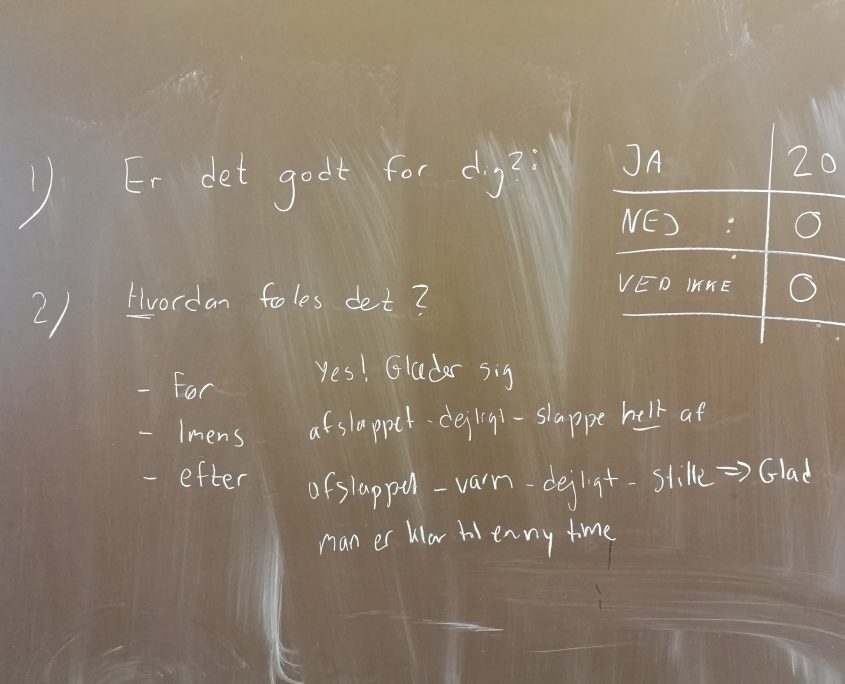 1) Er det godt for dig?:
JA 20
NEJ : 0
VED IKKE 0
2) Hvordan føles det?
- Før Yes! Glæder sig
- Imens afslappet - dejligt - slappe helt af
- efter afslappet - varm - dejligt - stille => Glad
man er klar til en ny time